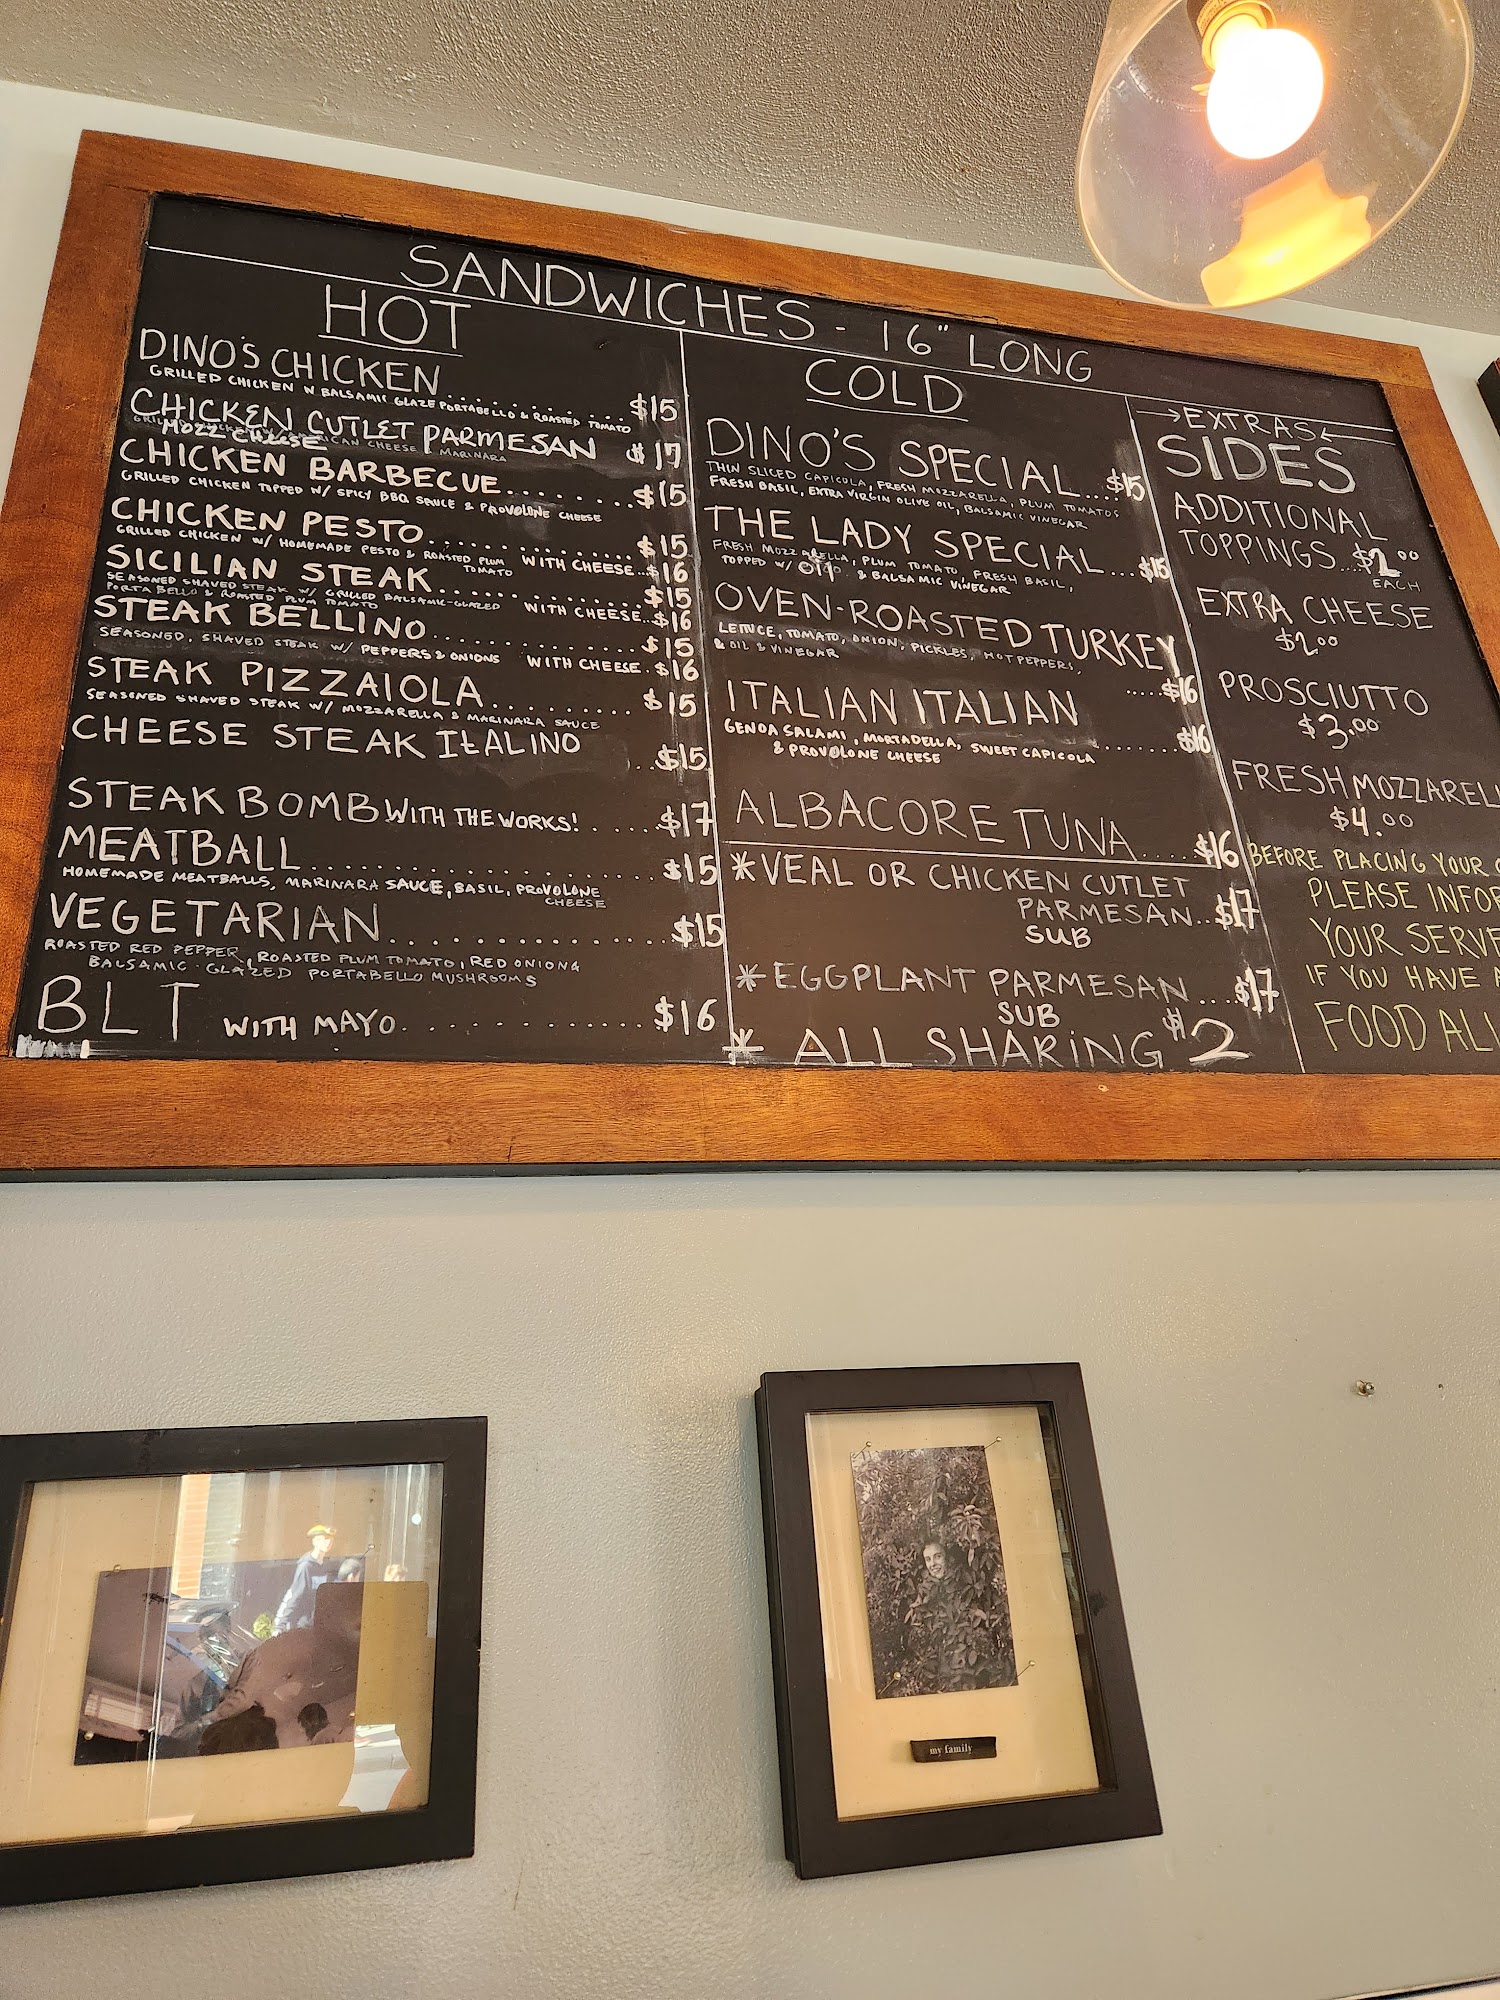 SANDWICHES - 16" LONG
HOT
DINO'S CHICKEN........$15
GRILLED CHICKEN W BALSAMIC GLAZE PORTABELLO & ROASTED TOMATO
CHICKEN CUTLET PARMESAN $17
MOZZ CHEESE MARINARA
CHICKEN BARBECUE........$15
GRILLED CHICKEN TOPPED W/ SPICY BBQ SAUCE & PROVOLONE CHEESE
CHICKEN PESTO........$15
GRILLED CHICKEN W/ HOMEMADE PESTO & ROASTED PLUM TOMATO
WITH CHEESE...$16
SICILIAN STEAK........$15
SEASONED SHAVED STEAK W/ GRILLED BALSAMIC-GLAZED
PORTA BELLO & ROASTED PLUM TOMATO
WITH CHEESE...$16
STEAK BELLINO........$15
SEASONED, SHAVED STEAK W/ PEPPERS & ONIONS WITH CHEESE.$16
STEAK PIZZAIOLA........$15
SEASONED SHAVED STEAK W/ MOZZARELLA & MARINARA SAUCE
CHEESE STEAK ITALINO
...$15
STEAK BOMB WITH THE WORKS!.....$17
MEATBALL........$15
HOMEMADE MEATBALLS, MARINARA SAUCE, BASIL, PROVOLONE
CHEESE
VEGETARIAN........$15
ROASTED RED PEPPER, ROASTED PLUM TOMATO, RED ONION &
BALSAMIC-GLAZED PORTABELLO MUSHROOMS
BLT WITH MAYO........$16
COLD
DINO'S SPECIAL....$15
THIN SLICED CAPICOLA, FRESH MOZZARELLA, PLUM TOMATOS
FRESH BASIL, EXTRA VIRGIN OLIVE OIL, BALSAMIC VINEGAR
THE LADY SPECIAL...$15
FRESH MOZZARELLA, PLUM TOMATO, FRESH BASIL,
TOPPED W/ OIL & BALSAMIC VINEGAR
OVEN-ROASTED TURKEY
LETTUCE, TOMATO, ONION, PICKLES, HOT PEPPERS,
& OIL & VINEGAR
.....$16
ITALIAN ITALIAN
GENOA SALAMI, MORTADELLA, SWEET CAPICOLA
& PROVOLONE CHEESE
........$16
ALBACORE TUNA.....$16
*VEAL OR CHICKEN CUTLET
PARMESAN..$17
SUB
*EGGPLANT PARMESAN...$17
SUB
* ALL SHARING $2
EXTRAS
SIDES
ADDITIONAL
TOPPINGS...$2.00
EACH
EXTRA CHEESE
$2.00
PROSCIUTTO
$3.00
FRESH MOZZARELL
$4.00
BEFORE PLACING YOUR
PLEASE INFOR
YOUR SERVE
IF YOU HAVE A
FOOD ALL
my family